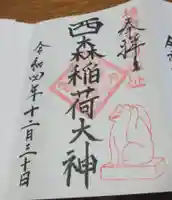 奉拝
西森稲荷大神
令和四年十二月三十日